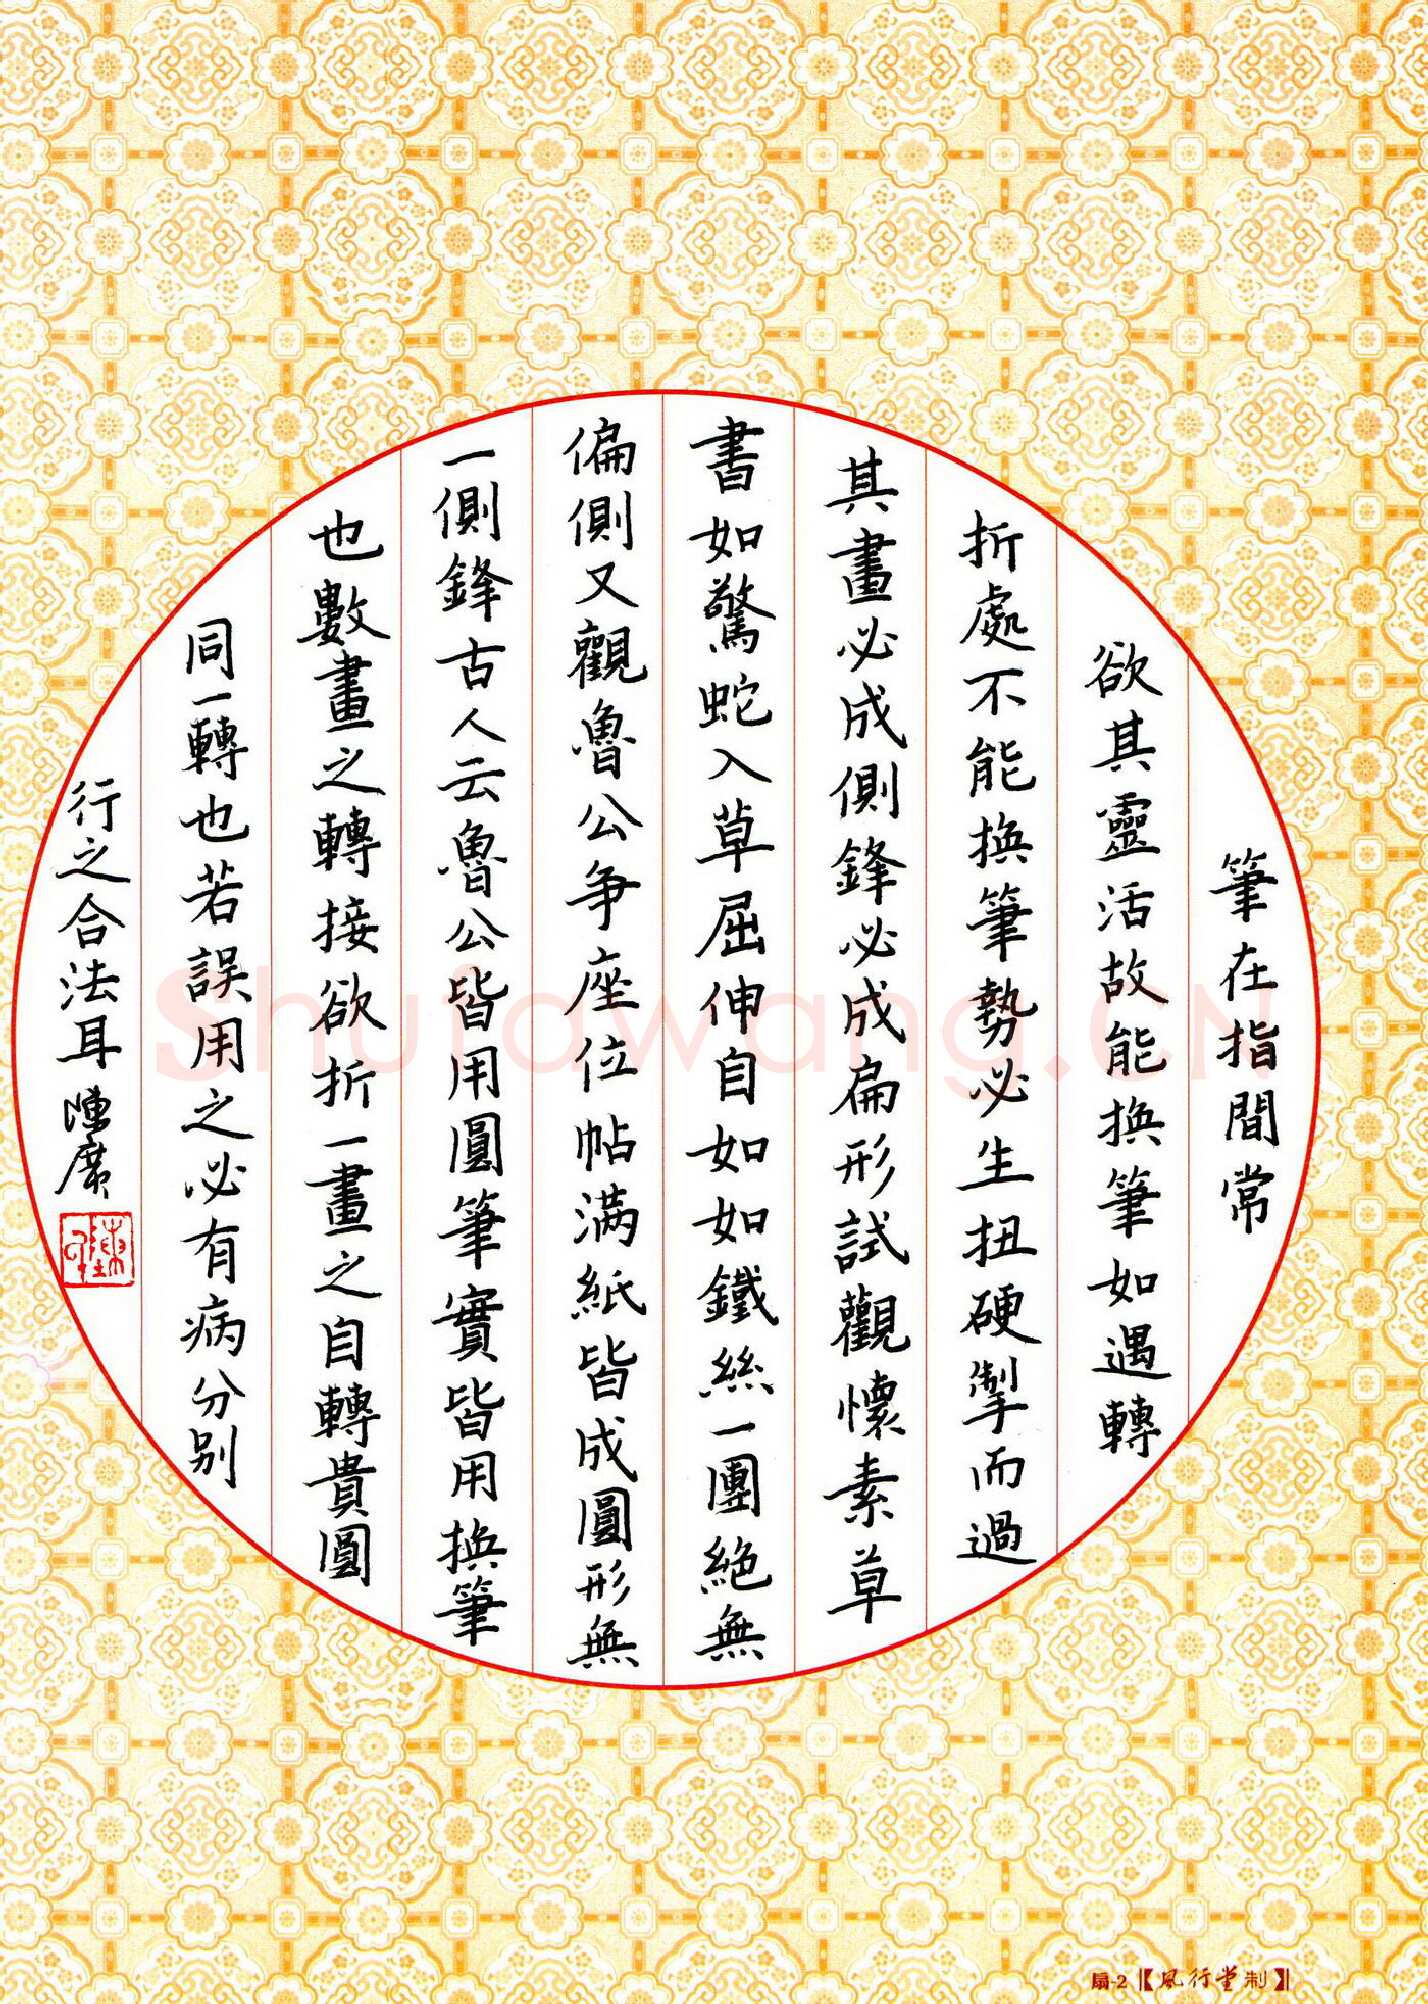 筆在指間常
欲其靈活故能換筆如遇轉
折處不能換筆勢必生扭硬掣而過
其畫必成側鋒必成扁形試觀懷素草
書如驚蛇入草屈伸自如如鐵絲一團絕無
偏側又觀魯公爭座位帖滿紙皆成圓形無
一側鋒古人云魯公皆用圓筆實皆用換筆
也數畫之轉接欲折一畫之自轉貴圓
同一轉也若誤用之必有病分別
行之合法耳陳廣
Shufawang.CN
扇-2【風行堂制】